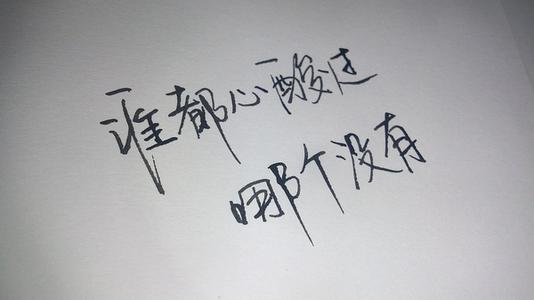 谁都心酸过
哪个没有